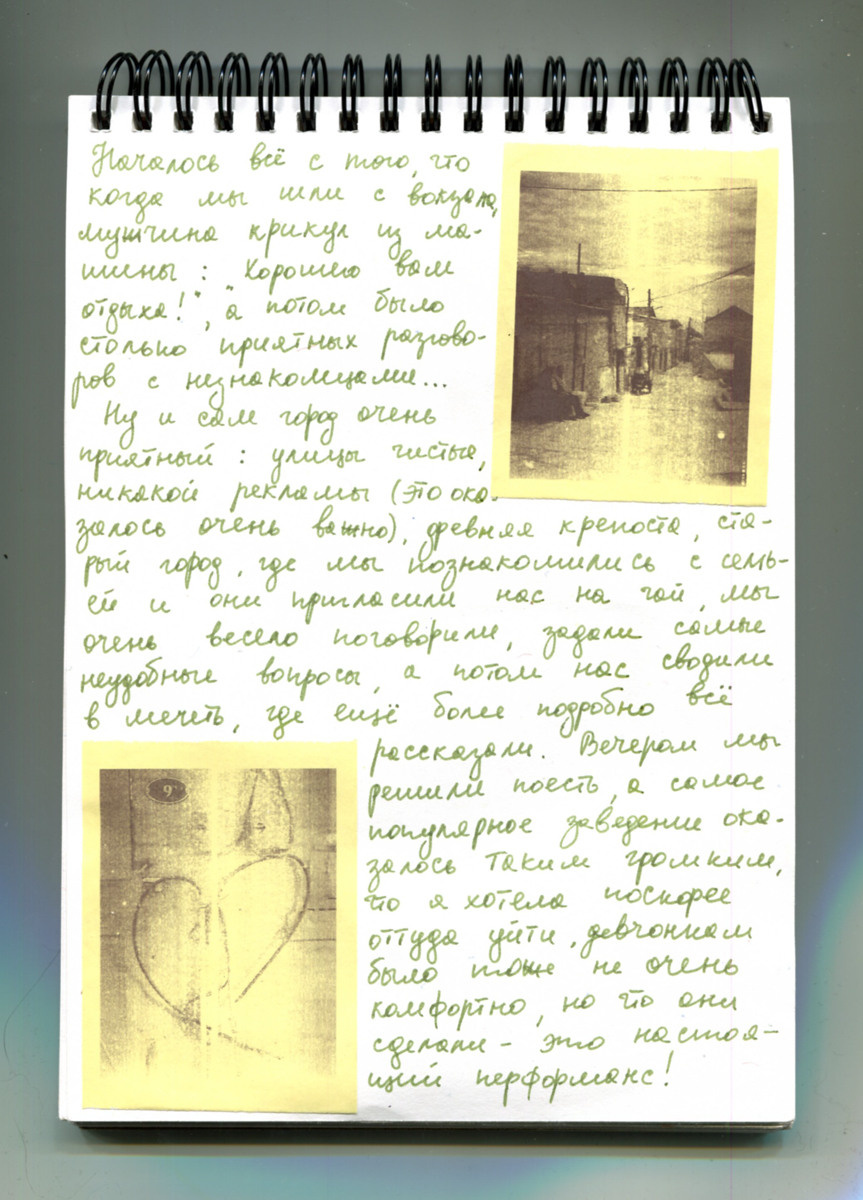 Началось всё с того, что
когда мы шли с вокзала,
мужчина крикул из ма-
шины: "Хорошего вам
отдыха!", а потом было
столько приятных разгово-
ров с незнакомцами...
Ну и сам город очень
приятный: улицы чистые,
никакой рекламы (это ока-
залось очень важно), древняя крепость, ста-
рый город, где мы познакомились с семь-
ей и они пригласили нас на чай, мы
очень весело поговорили, задали самые
неудобные вопросы, а потом нас сводили
в мечеть, где ещё более подробно всё
рассказали. Вечером мы
решили поесть, а самое
популярное заведение ока-
залось таким громким,
что я хотела поскорее
оттуда уйти, девчонкам
было тоже не очень
комфортно, но что они
сделали - это настоя-
щий перформанс!
9